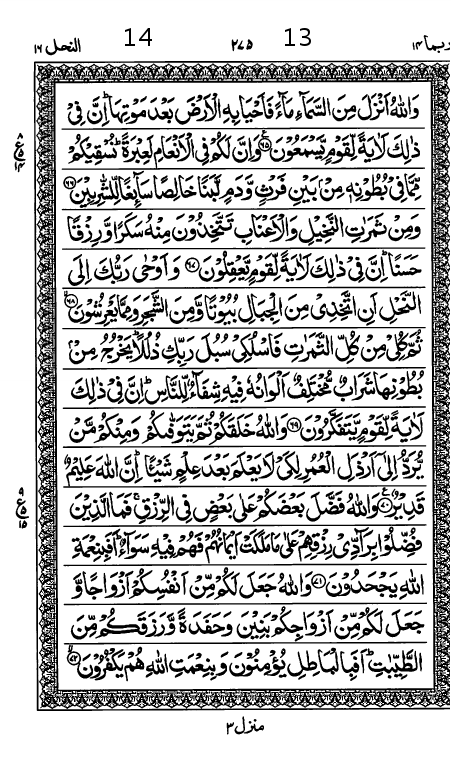 ربما ١٤ 13 ٢٧٥ 14 النحل ١٦
وَاللهُ اَنْزَلَ مِنَ السَّمَآءِ مَآءً فَاَحْيَا بِهِ الْاَرْضَ بَعْدَ مَوْتِهَا ؕ اِنَّ فِيْ
ذٰلِكَ لَاٰيَةً لِّقَوْمٍ يَّسْمَعُوْنَ ﴿٦٥﴾ وَاِنَّ لَكُمْ فِي الْاَنْعَامِ لَعِبْرَةً ؕ نُسْقِيْكُمْ
مِّمَّا فِيْ بُطُوْنِهٖ مِنْۢ بَيْنِ فَرْثٍ وَّدَمٍ لَّبَنًا خَالِصًا سَآىِٕغًا لِّلشّٰرِبِيْنَ ﴿٦٦﴾
وَمِنْ ثَمَرٰتِ النَّخِيْلِ وَالْاَعْنَابِ تَتَّخِذُوْنَ مِنْهُ سَكَرًا وَّرِزْقًا
حَسَنًا ؕ اِنَّ فِيْ ذٰلِكَ لَاٰيَةً لِّقَوْمٍ يَّعْقِلُوْنَ ﴿٦٧﴾ وَاَوْحٰى رَبُّكَ اِلَى
النَّحْلِ اَنِ اتَّخِذِيْ مِنَ الْجِبَالِ بُيُوْتًا وَّمِنَ الشَّجَرِ وَمِمَّا يَعْرِشُوْنَ ﴿٦٨﴾
ثُمَّ كُلِيْ مِنْ كُلِّ الثَّمَرٰتِ فَاسْلُكِيْ سُبُلَ رَبِّكِ ذُلُلًا ؕ يَخْرُجُ مِنْۢ
بُطُوْنِهَا شَرَابٌ مُّخْتَلِفٌ اَلْوَانُهٗ فِيْهِ شِفَآءٌ لِّلنَّاسِ ؕ اِنَّ فِيْ ذٰلِكَ
لَاٰيَةً لِّقَوْمٍ يَّتَفَكَّرُوْنَ ﴿٦٩﴾ وَاللهُ خَلَقَكُمْ ثُمَّ يَتَوَفّٰىكُمْ وَمِنْكُمْ مَّنْ
يُّرَدُّ اِلٰٓى اَرْذَلِ الْعُمُرِ لِكَيْ لَا يَعْلَمَ بَعْدَ عِلْمٍ شَيْـًٔا ؕ اِنَّ اللهَ عَلِيْمٌ
قَدِيْرٌ ﴿٧٠﴾ وَاللهُ فَضَّلَ بَعْضَكُمْ عَلٰى بَعْضٍ فِي الرِّزْقِ ۚ فَمَا الَّذِيْنَ
فُضِّلُوْا بِرَآدِّيْ رِزْقِهِمْ عَلٰى مَا مَلَكَتْ اَيْمَانُهُمْ فَهُمْ فِيْهِ سَوَآءٌ ؕ اَفَبِنِعْمَةِ
اللهِ يَجْحَدُوْنَ ﴿٧١﴾ وَاللهُ جَعَلَ لَكُمْ مِّنْ اَنْفُسِكُمْ اَزْوَاجًا وَّ
جَعَلَ لَكُمْ مِّنْ اَزْوَاجِكُمْ بَنِيْنَ وَحَفَدَةً وَّرَزَقَكُمْ مِّنَ
الطَّيِّبٰتِ ؕ اَفَبِالْبَاطِلِ يُؤْمِنُوْنَ وَبِنِعْمَتِ اللهِ هُمْ يَكْفُرُوْنَ ﴿٧٢﴾
٨ ع ٥ ١٤
٩ ع ٥ ١٥
منزل ٣